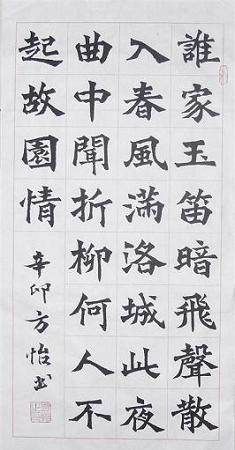 誰家玉笛暗飛聲散
入春風滿洛城此夜
曲中聞折柳何人不
起故園情
辛卯方怡书